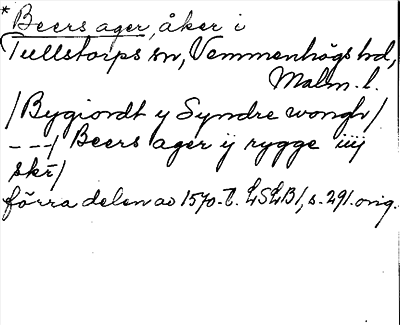 * Beers ager, åker i
Tullstorps sn, Vemmenhögs hd,
Malm. l.
/Bygiordt y Syndre wongh/
---/ Beers ager ij rygge iiij
skr/
förra delen av 1570-t. LSLB1, s. 291. orig.